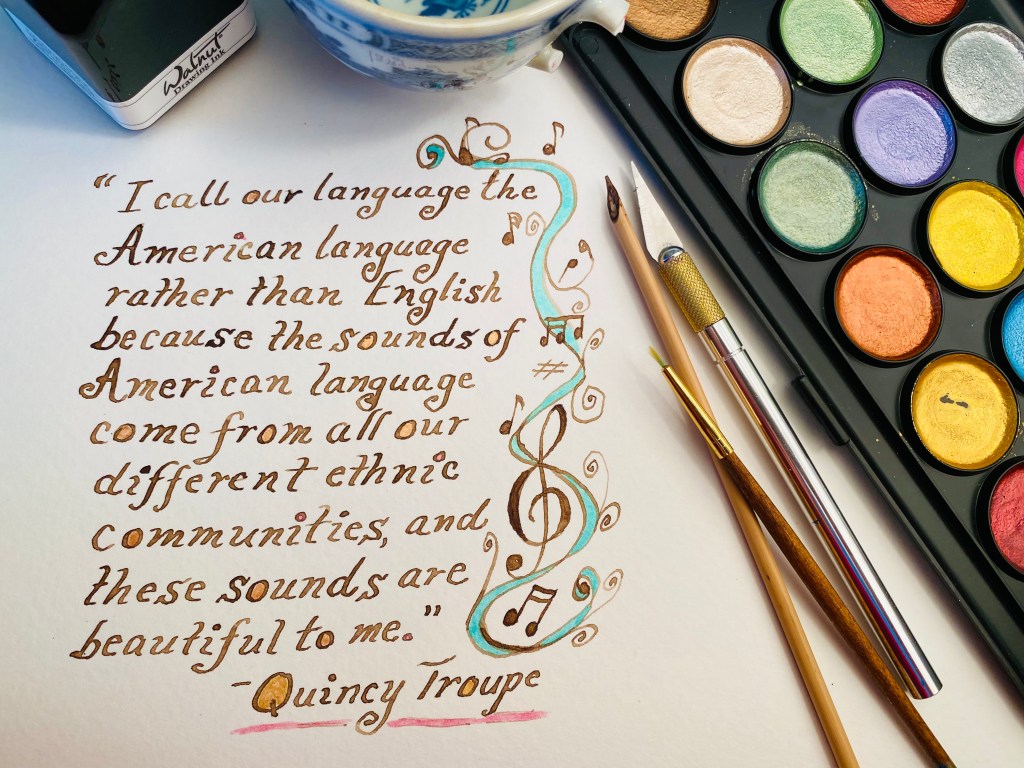 Walnut
Drawing Ink
“I call our language the
American language
rather than English
because the sounds of
American language
come from all our
different ethnic
communities, and
these sounds are
beautiful to me.”
~Quincy Troupe